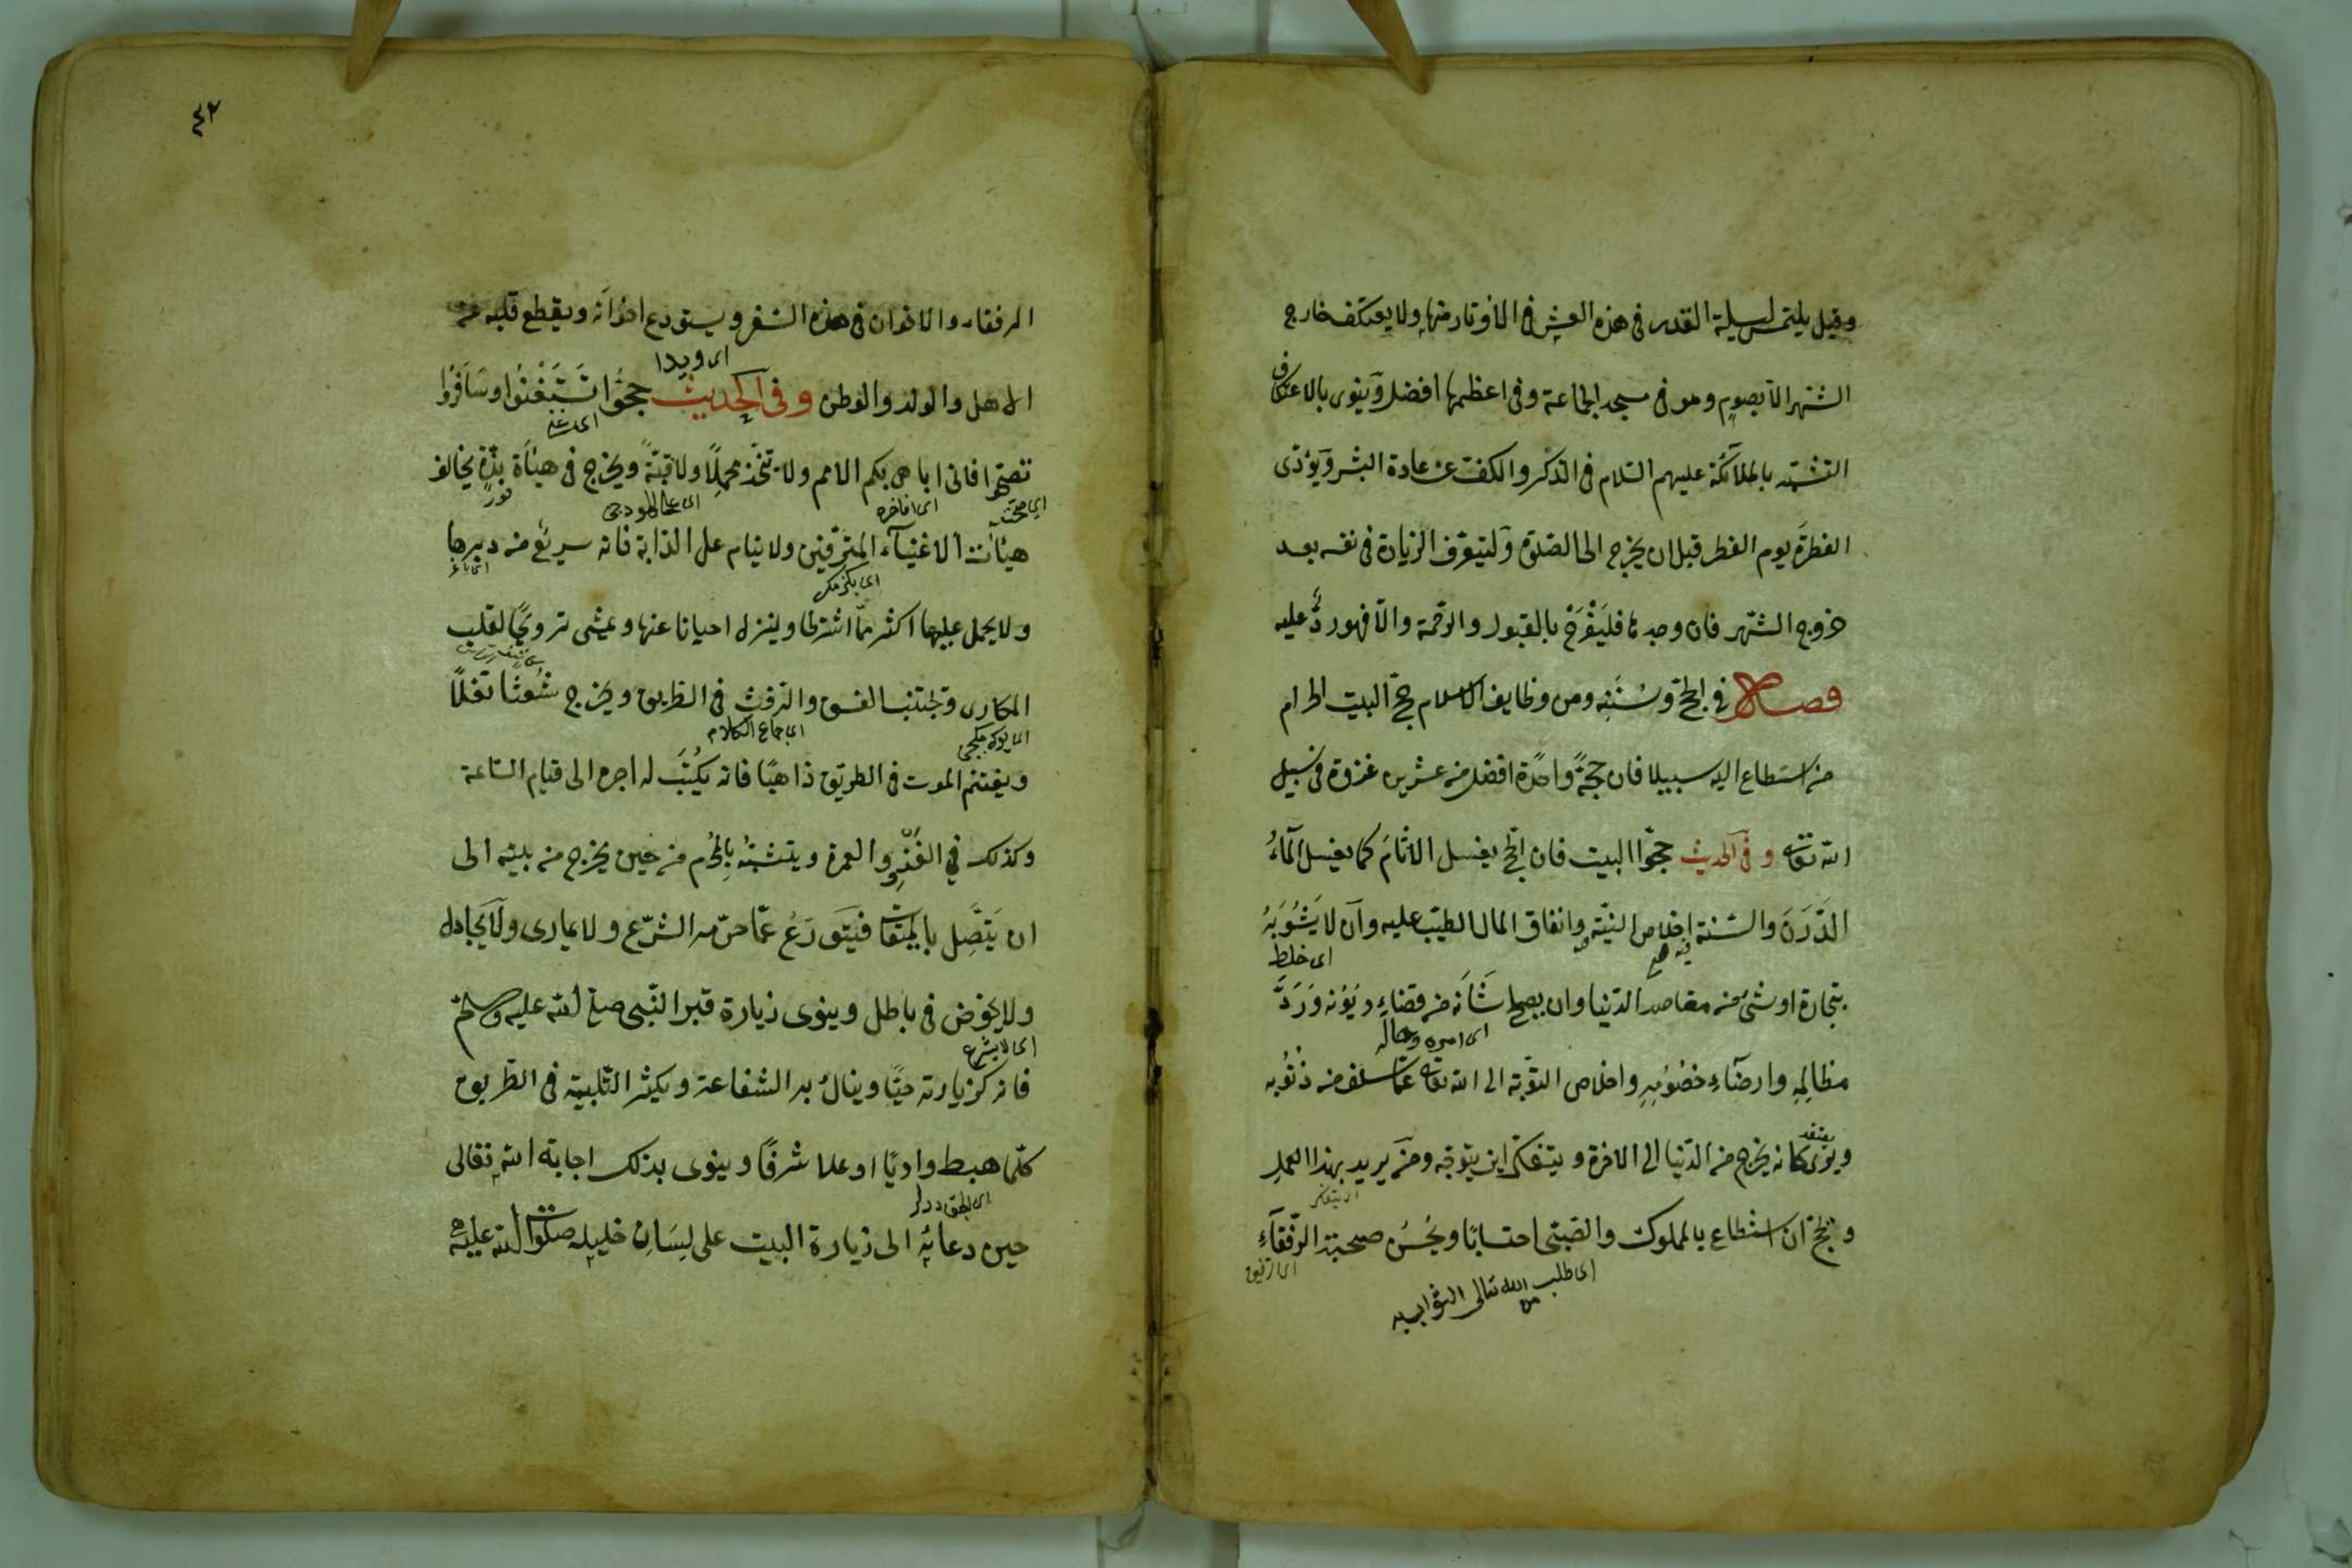 وقيل يلتمس ليلة القدر فى هذه العشر فى الاوتار منها ولا يعتكف خارج
الشهر الا بصوم وهو فى مسجد الجماعة وفى اعظمها افضل وينوى بالاعتكاف
التشبه بالملآئكة عليهم السلام فى الذكر والكف عن عادة البشر ويؤدى
الفطرة يوم الفطر قبل ان يخرج الى الصلوة وليتعرف الزيادة فى نفسه بعد
خروج الشهر فان وجدها فليفرح بالقبول والرحمة والا فهو ردّ عليه
فصل فى الحج وسننه ومن وظايف الاسلام حج البيت الحرام
من استطاع اليه سبيلا فان حجةً واحدة افضل من عشرين غزوة فى سبيل
الله تعالى وفى الحديث حجوا البيت فان الحج يغسل الاثام كما يغسل المآءُ
الدَّرَنَ والسنة اخلاص النية فيه وانفاق المال الطيب عليه وان لا يَشُوبَهُ
اى خلط
بتجارة او شئ من مقاصد الدنيا وان يصلح شأنه من قضاءِ ديونه وَرَدِّ
اى امره وحاله
مظالِمِهِ وارضآءِ خصُومِهِ واخلاص التوبة الى الله تعالى عمّا سلف من ذنُوبه
وينوى كانه يخرج من الدنيا الى الاخرة ويتفكر اين يتوجه ومن يريد بهذا العمل
اى يتفكر
ويحج ان استطاع بالمملوك والصبى احتسابًا ويُحْسُن صحبة الرفقآءِ
اى طلب من الله تعالى الثواب به
٤٢
الرفقاء والاخوان فى هذه السفر ويستودع اخوانه ويقطع قلبه عن
الاهل والولد والوطن وفى الحديث حجُّوا تَسْتَغْنُوا وسَافِرُوا
تصحّوا فانى اباهى بكم الامم ولا تتخذ محملًا ولا قبّةً ويخرج فى هيئة بذّة يخالف
اى صحت
اى افاخره
هيئات الاغنيآء المترفين ولا ينام على الدابة فانه سريع من دبرها
ولا يحمل عليها اكثر ممّا اشترط وينزل احيانا عنها ويمشى ترويحًا لقلب
المكارى ويجتنب الفسق والرفث فى الطريق ويخرج شعثًا تفلًا
اى جماع الكلام
ويغتنم الموت فى الطريق ذاهبًا فانه يُكتَب له اجره الى قيام الساعة
وكذلك فى الغَزْوِ والعمرة ويتشبّهُ بالمُحْرِم من حين يخرج من بيته الى
ان يَتَّصِل بالميقات فيتورّعُ عمّا حرّمه الشرع ولا يمارى ولا يجادل
ولا يخوض فى باطل وينوى زيارة قبر النبى صلى الله عليه وسلم
اى لا يشرع
فانه كزيارته حيًّا وينالُ به الشفاعة ويكثر التلبية فى الطريق
كلّما هبط واديًا او علا شرفًا وينوى بذلك اجابة الله تعالى
حين دعائه الى زيارة البيت على لِسَانِ خليله صلوات الله عليه